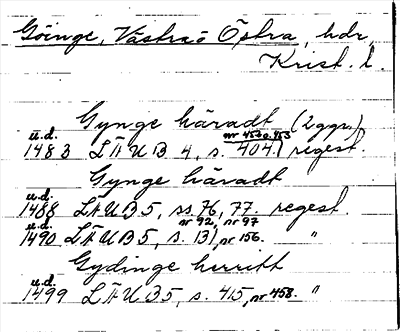 Göinge, Västra o Östra, hdr
Krist. l.
Gynge häradt (2 ggr)
u.d. nr 452 o. 453
1483 LÄUB 4, s. 404. regest.
Gynge häradt
u.d.
1488 LÄUB 5, ss. 76, 77. regest.
u.d. nr 92, nr 97
1490 LÄUB 5, s. 131, nr 156. "
Gydinge herritt
u.d.
1499 LÄUB 5, s. 415, nr 458. "